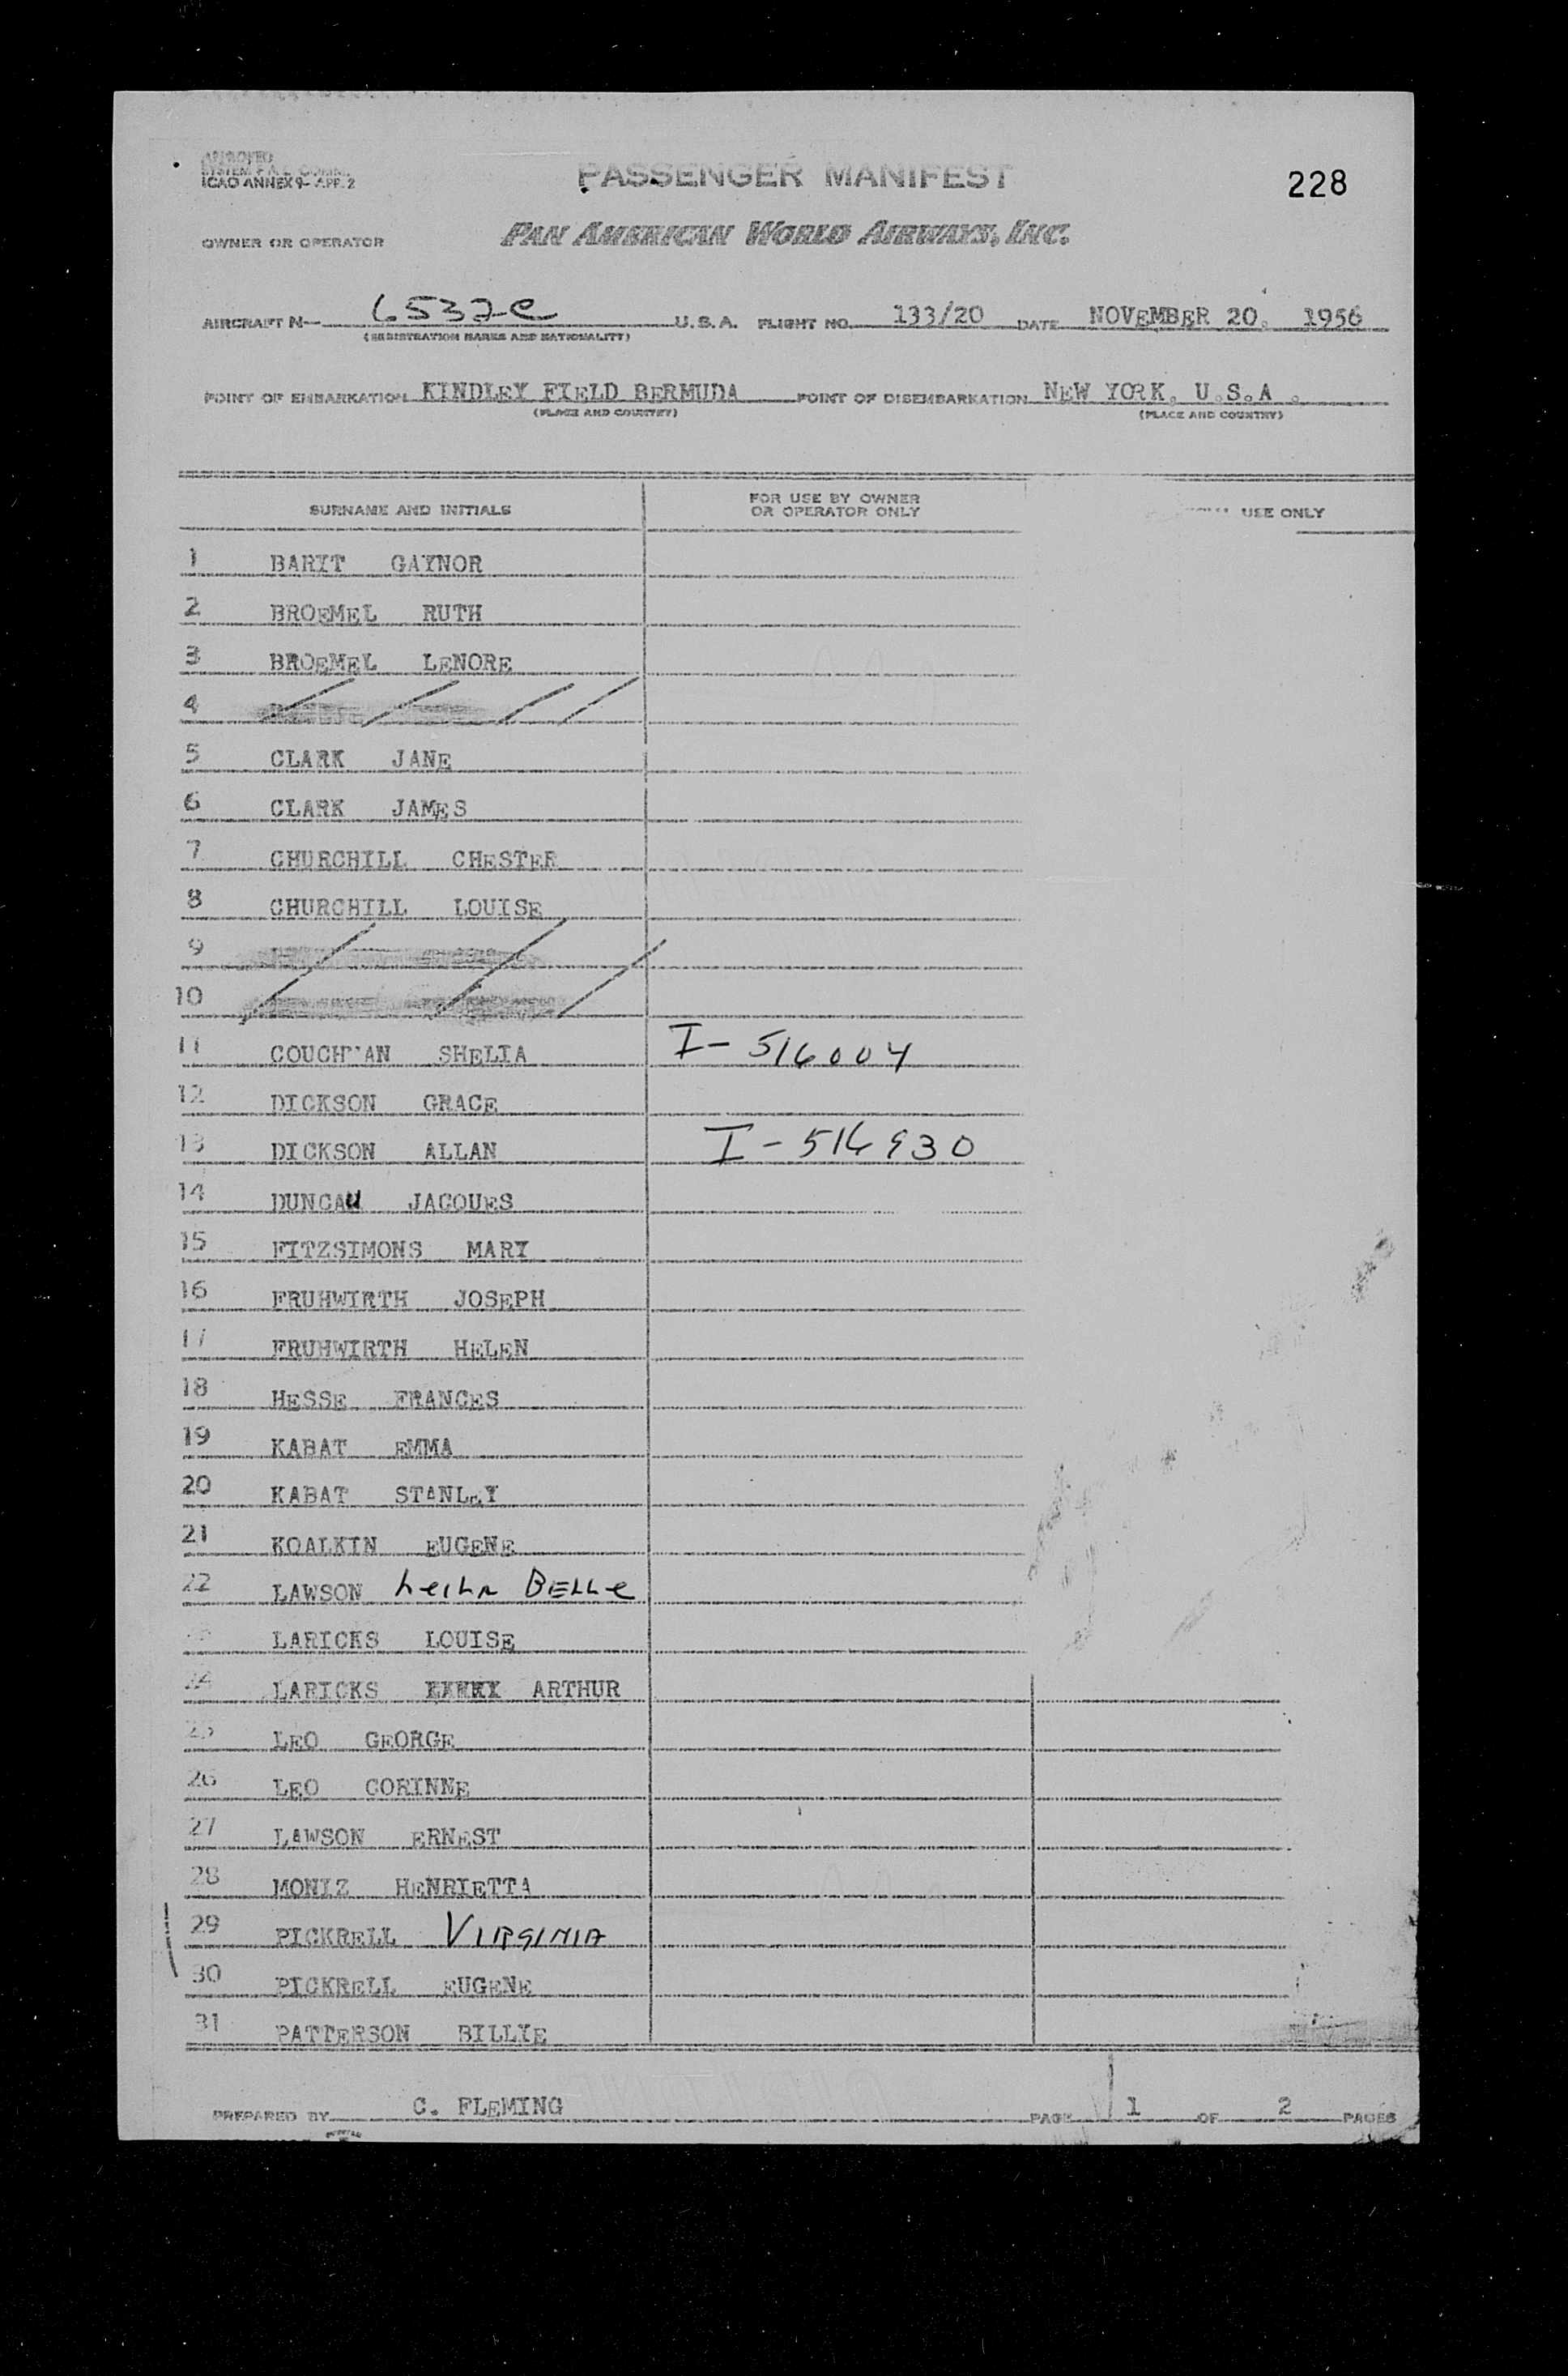 APPROVED
ICAO ANNEX 9— APP. 2
PASSENGER MANIFEST
228
OWNER OR OPERATOR PAN AMERICAN WORLD AIRWAYS, INC.
AIRCRAFT N— 6532C U.S.A. FLIGHT NO. 133/20 DATE NOVEMBER 20, 1956
(REGISTRATION MARKS AND NATIONALITY)
POINT OF EMBARKATION KINDLEY FIELD BERMUDA POINT OF DISEMBARKATION NEW YORK, U.S.A.
(PLACE AND COUNTRY) (PLACE AND COUNTRY)
SURNAME AND INITIALS FOR USE BY OWNER OR OPERATOR ONLY USE ONLY
1 BARIT GAYNOR
2 BROEMEL RUTH
3 BROEMEL LENORE
4
5 CLARK JANE
6 CLARK JAMES
7 CHURCHILL CHESTER
8 CHURCHILL LOUISE
9
10
11 COUCHMAN SHELIA I-516004
12 DICKSON GRACE
13 DICKSON ALLAN I-516930
14 DUNCAN JACQUES
15 FITZSIMONS MARY
16 FRUHWIRTH JOSEPH
17 FRUHWIRTH HELEN
18 HESSE FRANCES
19 KABAT EMMA
20 KABAT STANLEY
21 KOALKIN EUGENE
22 LAWSON LeiLA BELLe
23 LARICKS LOUISE
24 LARICKS ARTHUR
25 LEO GEORGE
26 LEO CORINNE
27 LAWSON ERNEST
28 MONIZ HENRIETTA
29 PICKRELL VIRGINIA
30 PICKRELL EUGENE
31 PATTERSON BILLIE
PREPARED BY C. FLEMING PAGE 1 OF 2 PAGES